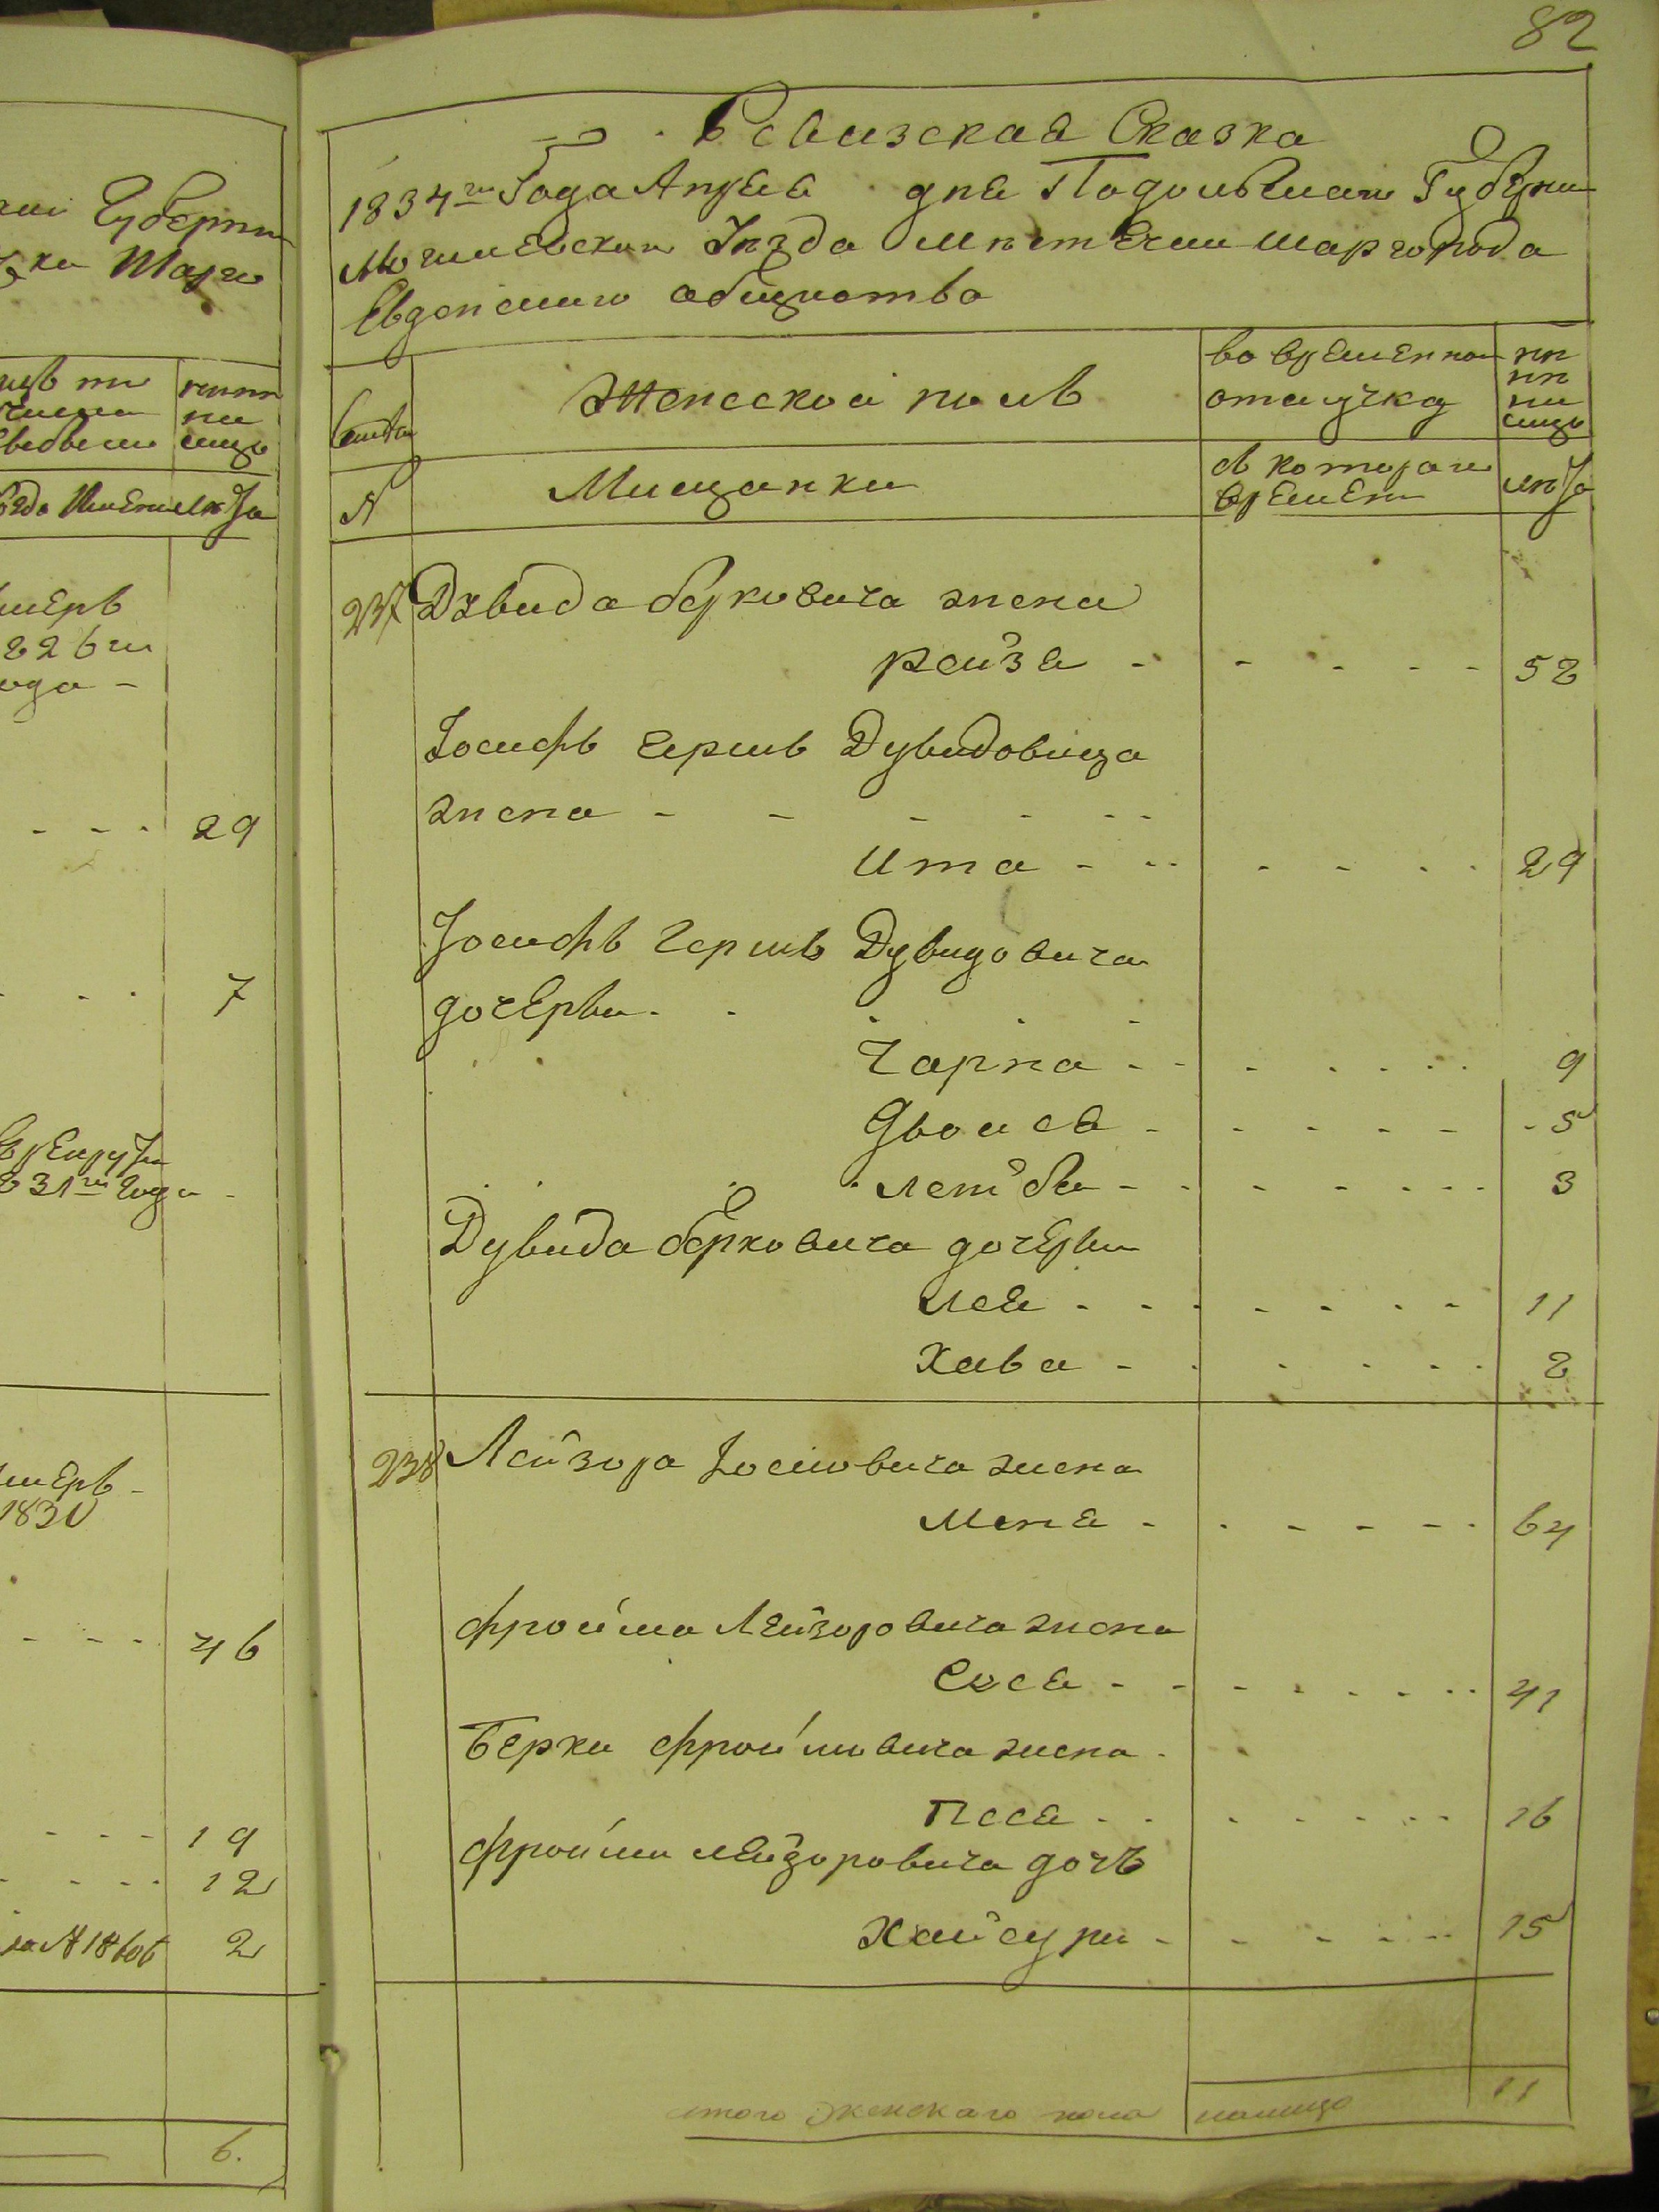 82
Ревизская Сказка
1834го Года Апреля дня Подольской Губернии
Могилевского Уезда Местечки Шаргорода
Евреиского общиства
Семьи
Женской полъ
во временной
отлучкѣ
на
ли
лицо
№
Мищанки
съ которого
времени
лѣта
237 Дувида Берковича жена
рейзя - - - - - 52
Іосифъ Гершъ Дувидовича
жена - - - - -
Ита - - - - - 29
Іосифъ Гершъ Дувидовича
дочерьи - -
Чарна - - - - - 9
Двоися - - - - - 5
лейба - - - - - 3
Дувида берковича дочерьи
лея - - - - - 11
Хава - - - - - 2
238 Лейзора Іосиовича жена
меня - - - - - 64
фройма Лейзоровича жена
Сося - - - - - 41
Берки фроймовича жена
Песя - - - - - 16
фройми лейзоровича дочъ
Хайсури - - - - - 15
итого женскаго пола налицо 11
кой Губерни
ка Шарго
умеръ
226го
года -
- - - 29
- - - 7
в Рекруты
831го Года
умеръ -
1830
- - - 46
- - - 19
- - - 12
2
6.